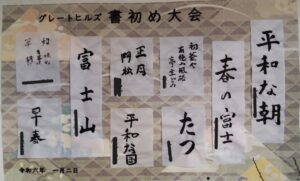 グレートヒルズ 書初め大会
平和な朝
春の富士
たつ
初釜や
正月
門松
平和な国
富士山
早春
令和六年 一月二日